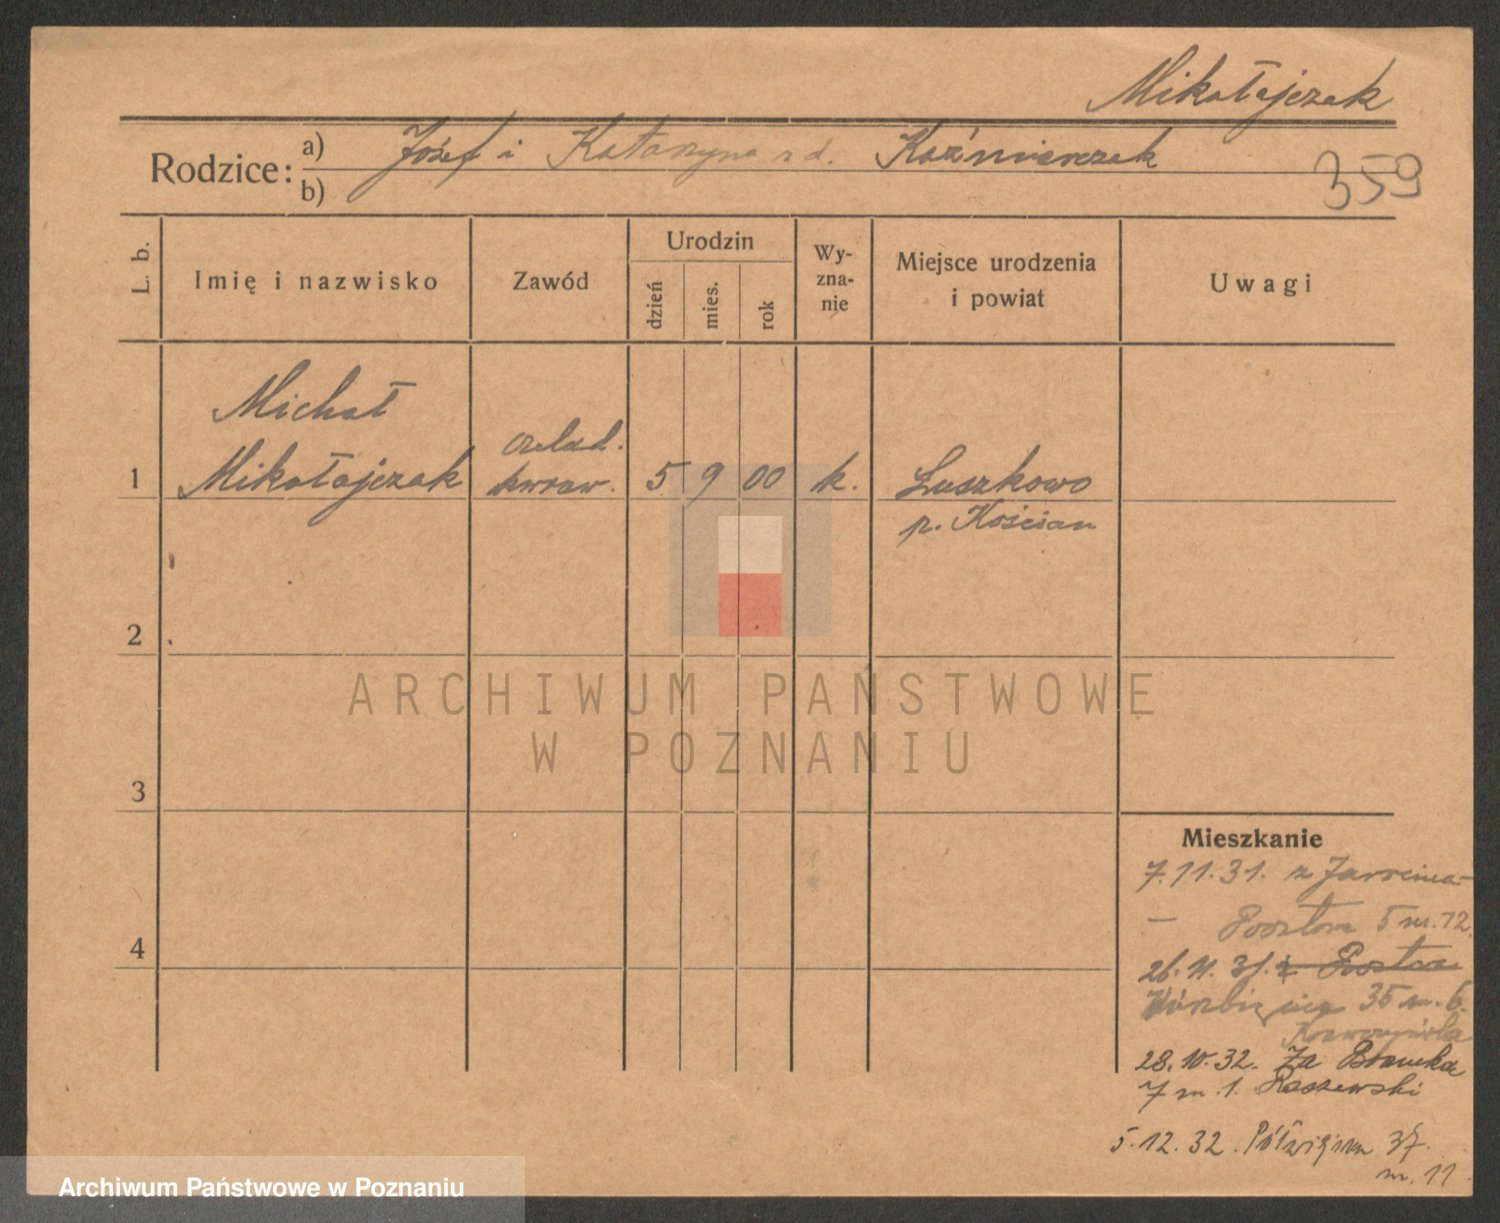 Mikołajczak
Rodzice: a) Józef i Katarzyna rd. Kaźmierczak
b)
359
L. b.
Imię i nazwisko
Zawód
Urodzin
dzień
mies.
rok
Wy-
zna-
nie
Miejsce urodzenia
i powiat
Uwagi
Michał
czelad.
1 Mikołajczak krraw. 5 9 00 k. Luszkowo
p. Kościan
2
ARCHIWUM PAŃSTWOWE
W POZNANIU
3
Mieszkanie
7.11.31. z Jarocina
— 5 m. 12.
4
26.11.31. z
35 m. 6.
28.10.32. Za Bramką
7 m. 1. Raszewski
5.12.32. Półwiejska 37.
m. 11
Archiwum Państwowe w Poznaniu